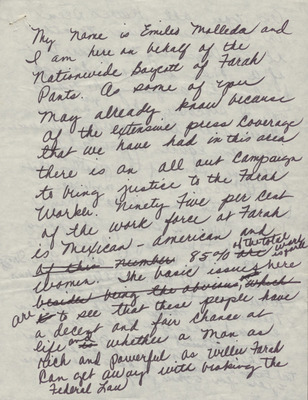 My Name is Emilio Molleda and
I am here on behalf of the
Nationwide Boycott of Farah
Pants. As some of you
May already know because
of the extensive press coverage
that we have had in this area
there is an all out campaign
to bring justice to the Farah
Worker. Ninety Five per Cent
of the work force at Farah
is Mexican-american and
of this number 85% of the total work
women. The basic issues here
besides being the obvious, which
are is to see that these people have
a decent and fair chance at
life and whether a man as
Rich and powerful as Willie Farah
Can get away with breaking the
Federal Law